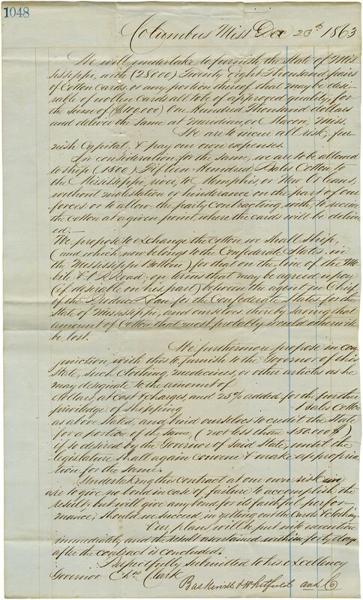 1048
Columbus Miss Dec 23th 1863
We will undertake to furnish the State of Mis
sissippi, with (28000) Twenty eight Thousand pairs
of Cotton Cards or any portion thereof that may be desi-
rable of woolen Cards all to be of approved quality, for
the sum of ($100.000) one Hundred Thousand dollars
and deliver the same at Macon, Miss.
We are to incur all risk, fur-
nish Capital, & pay our own expenses.
In consideration for the same, we are to be allowed
to ship (1500) Fifteen Hundred Bales Cotton
the Mississippi river, to Memphis or St Louis
without molestation or hindrance on the part of our
forces or to allow the party contracting with, to receive
the Cotton at a given point, where the cards will be deliver
ed.
We propose to exchange the cotton we shall ship,
(and which now belongs to the Confederate States, in
the Mississippi bottom,) for that on the line of the
R R, on terms that may be agreed upon
(if desirable on his part) between the agent in Chief
of the Produce Loan for the Confederate States, for the
State of Mississippi, and ourselves thereby saving that
amount of Cotton that most probably would otherwise
be lost.
We furthermore propose in con-
junction with this to furnish to the Governor of the
State, such clothing, medicines, or other articles as he
may designate to the amount of
dollars, at cost & charges, and 25% added, for the further
priviledge of shipping Bales Cotton
as above stated, and bind ourselves to credit the State
for a portion of the same, (not less than $50.000)
if desired by the Governor of said State, until the
legislature shall again convene & make appropria-
tion for the same.
Undertaking this contract at our own risk
are to give no bond in case of failure to accomplish the
result, but will give any bond for its faithful perfor-
mance, should we succeed in getting out the Cards & Clothing.
Our plans will be put into execution
immediately and the result ascertained within forty days
after the contract is concluded.
Respectfully submitted to his excellency
Governor Chs. Clark
Baskervill & Whitfield and Co